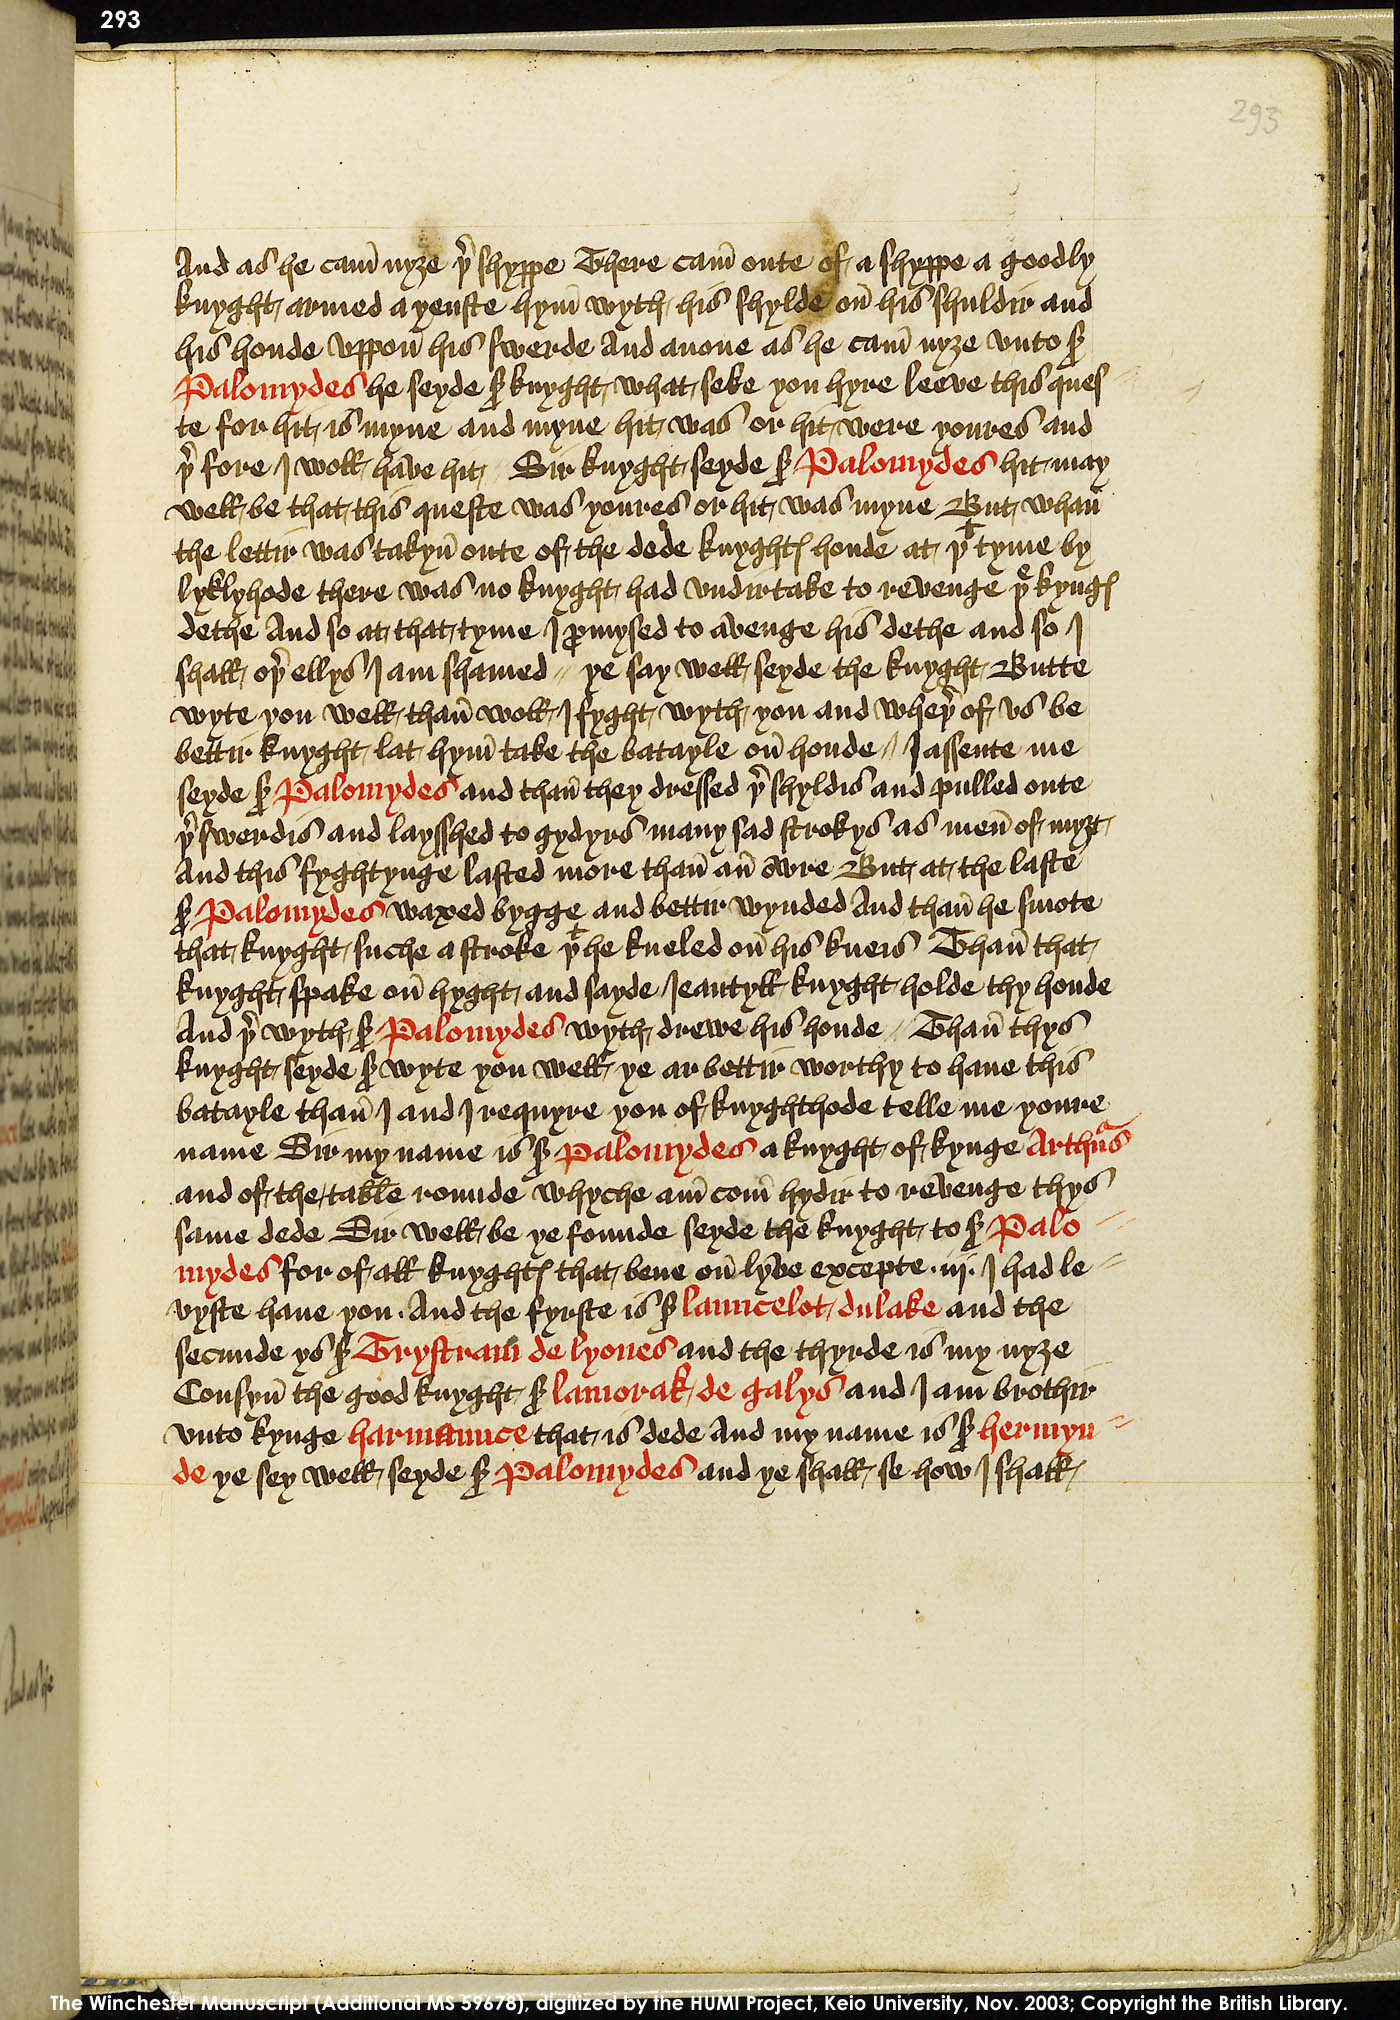 293
293
And as he cam̄ nyȝe þr̄ shyppe There cam̄ oute of a shyppe a goodly
knyght armed a yenste hym̄ wyth his shylde on̄ his shuldir and
his honde vppon̄ his swerde And anone as he cam̄ nyȝe vnto sr̄
Palomydes he seyde sr̄ knyght what seke you hyre leeve this ques
te for hit is myne and myne hit was or hit were youres and
þr̄ fore I woll have hit // Sir knyght seyde sr̄ Palomydes hit may
well be that this queste was youres or hit was myne But whan̄
the lettir was takyn̄ oute of the dede knyghtꝭ honde at þt tyme by
lyklyhode there was no knyght had vndirtake to revenge þe kyngꝭ
dethe And so at that tyme I ꝓmysed to avenge his dethe and so I
shall oþr̄ ellys I am shamed // ye say well seyde the knyght Butte
wyte you well than̄ woll I fyght wyth you and wheþr̄ of vs be
bettir knyght lat hym̄ take the batayle on̄ honde // I assente me
seyde sr̄ Palomydes and than̄ they dressed þr̄ shyldis and pulled oute
þr̄ swerdis and laysshed to gydyrs many sad strokys as men̄ of myȝt
And this fyghtynge lasted more than̄ an̄ owre But at the laste
sr̄ Palomydes waxed bygge and bettir wynded And than̄ he smote
that knyght suche a stroke þt he kneled on̄ his kneis Than̄ that
knyght spake on̄ hyght and sayde Jeantyll knyght holde thy honde
And þr̄ wyth sr̄ Palomydes wyth drewe his honde // Than̄ thys
knyght seyde sr̄ wyte you well ye ar bettir worthy to haue this
batayle than̄ I and I requyre you of knyghthode telle me youre
name Sir my name is sr̄ Palomydes a knyght of kynge Arthurs
and of the table rounde whyche am̄ com̄ hydir to revenge thys
same dede Sir well be ye founde seyde the knyght to sr̄ Palo //
mydes for of all knyghtꝭ that bene on̄ lyve excepte .iij. I had le //
vyste haue you . And the fyrste is sr̄ launcelot dulake and the
secunde ys sr̄ Trystram de lyones and the thyrde is my nyȝe
Cousyn̄ the good knyght sr̄ lamorak de galys and I am brothir
vnto kynge harmaunce that is dede And my name is sr̄ hermyn //
de ye sey well seyde sr̄ Palomydes and ye shall se how I shall
And as he
The Winchester Manuscript (Additional MS 59678), digitized by the HUMI Project, Keio University, Nov. 2003; Copyright the British Library.